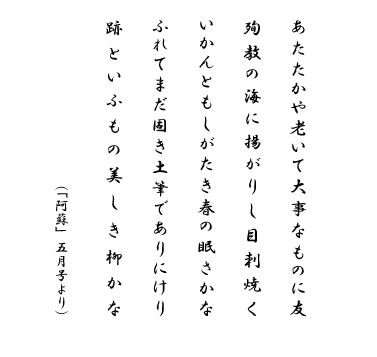 あたたかや老いて大事なものに友
殉教の海に揚がりし目刺焼く
いかんともしがたき春の眠さかな
ふれてまだ固き土筆でありにけり
跡といふもの美しき柳かな
(「阿蘇」五月号より)